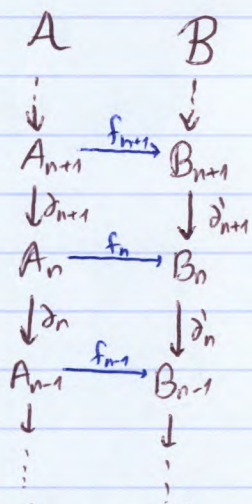 A B
f_{n+1}
A_{n+1} B_{n+1}
∂_{n+1} ∂'_{n+1}
f_n
A_n B_n
∂_n ∂'_n
f_{n-1}
A_{n-1} B_{n-1}